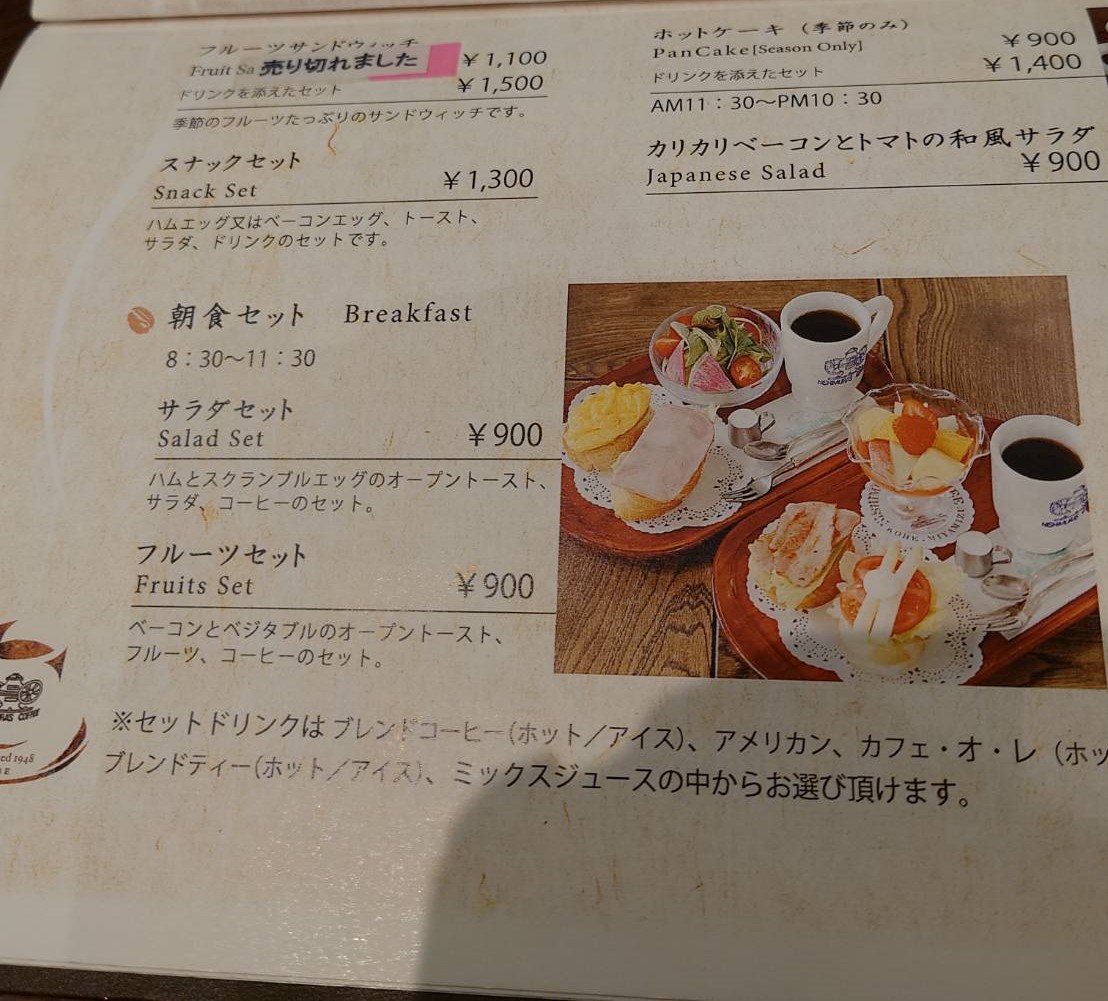 フルーツサンドウィッチ
Fruit Sa 売り切れました ¥1,100
ドリンクを添えたセット ¥1,500
季節のフルーツたっぷりのサンドウィッチです。
スナックセット
Snack Set ¥1,300
ハムエッグ又はベーコンエッグ、トースト、
サラダ、ドリンクのセットです。
ホットケーキ（季節のみ）
PanCake[Season Only] ¥900
ドリンクを添えたセット ¥1,400
AM11：30〜PM10：30
カリカリベーコンとトマトの和風サラダ
Japanese Salad ¥900
朝食セット Breakfast
8：30〜11：30
サラダセット
Salad Set ¥900
ハムとスクランブルエッグのオープントースト、
サラダ、コーヒーのセット。
フルーツセット
Fruits Set ¥900
ベーコンとベジタブルのオープントースト、
フルーツ、コーヒーのセット。
※セットドリンクは ブレンドコーヒー(ホット／アイス)、アメリカン、カフェ・オ・レ（ホッ
ブレンドティー(ホット／アイス)、ミックスジュースの中からお選び頂けます。
COFFEE
ed 1948